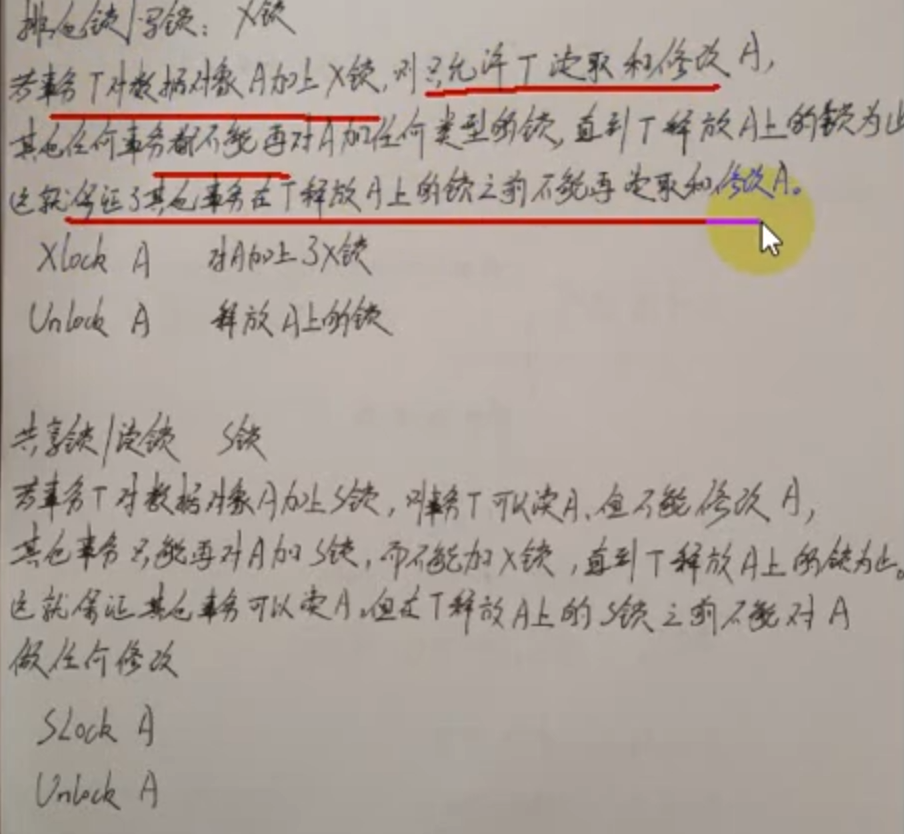 排他锁|写锁: X锁
若事务T对数据对象A加上X锁,则只允许T读取和修改A,
其他任何事务都不能再对A加任何类型的锁,直到T释放A上的锁为止
这就保证了其他事务在T释放A上的锁之前不能再读取和修改A。
Xlock A 对A加上了X锁
Unlock A 释放A上的锁
共享锁|读锁 S锁
若事务T对数据对象A加上S锁,则事务T可以读A、但不能修改A,
其他事务只能再对A加S锁,而不能加X锁,直到T释放A上的锁为止。
这就保证其他事务可以读A,但在T释放A上的S锁之前不能对A
做任何修改
SLock A
Unlock A